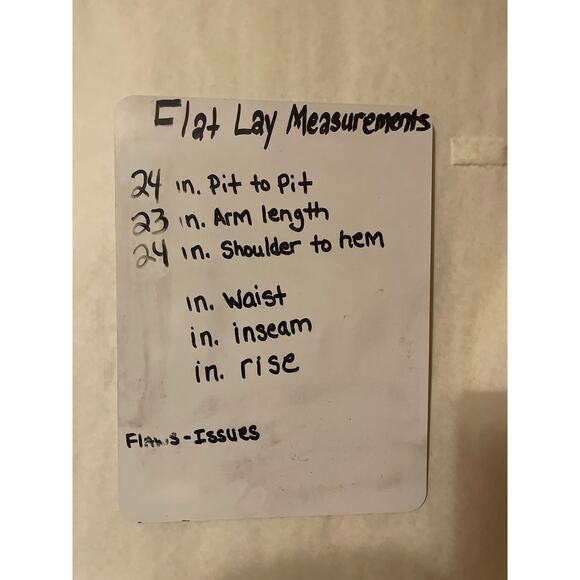 Flat Lay Measurements
24 in. Pit to Pit
23 in. Arm length
24 in. Shoulder to hem
in. Waist
in. inseam
in. rise
Flaws-Issues